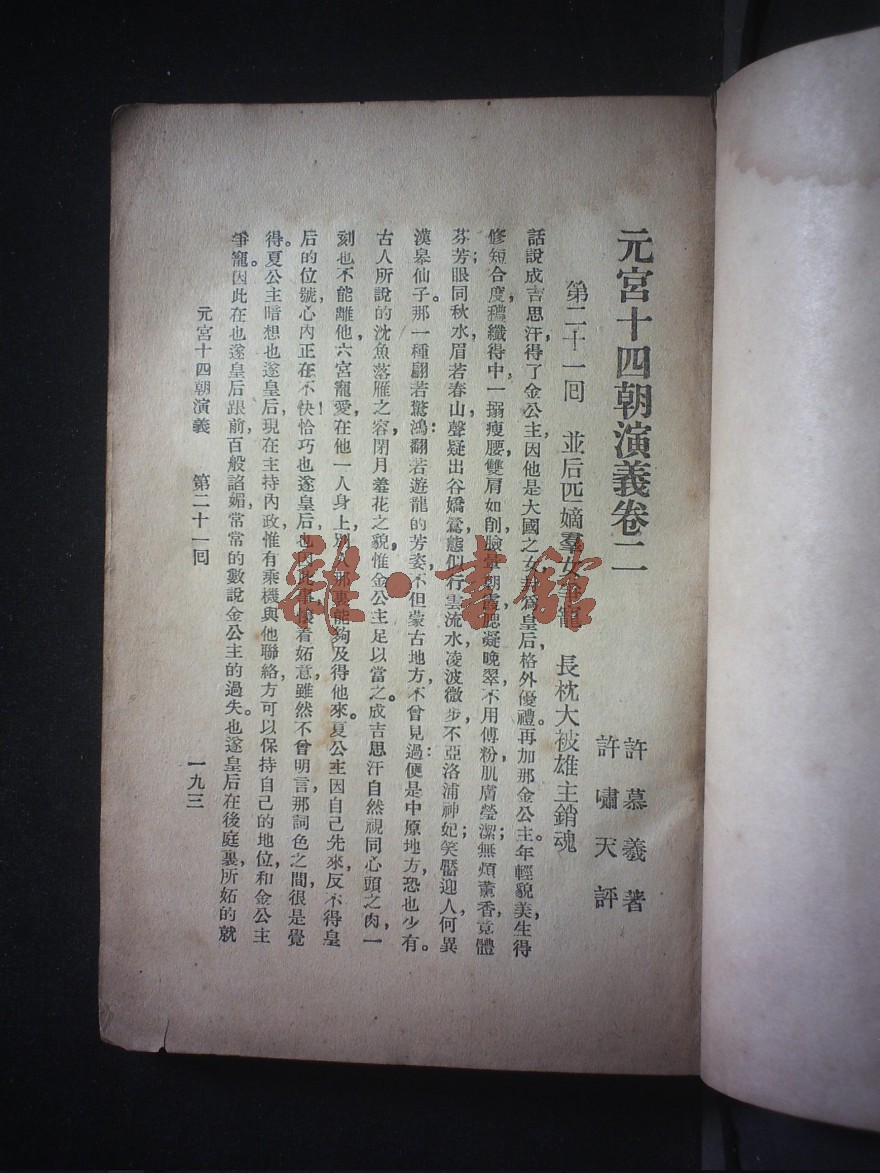 元宮十四朝演義卷二
許慕羲著
許嘯天評
第二十一回　並后匹嫡羣女爭寵　長枕大被雄主銷魂
話說成吉思汗得了金公主因他是大國之女尹爲皇后格外優禮。再加那金公主年輕貌美生得
修短合度，穠纖得中一搦瘦腰，雙肩如削臉暈朝霞，腮凝晚翠不用傅粉肌膚瑩潔；無煩薰香竟體
芬芳；眼同秋水，眉若春山聲疑出谷嬌鶯態似行雲流水，凌波微步不亞洛浦神妃；笑靨迎人，何異
漢皋仙子。那一種翩若驚鴻翩若遊龍的芳姿，不但蒙古地方，不曾見過便是中原地方，恐也少有。
古人所說的沈魚落雁之容，閉月羞花之貌惟金公主足以當之。成吉思汗自然視同心頭之肉，一
刻也不能離他，六宮寵愛，在他一人身上，別人那裏能夠及得他來。夏公主因自己先來，反不得皇
后的位號心內正在不快恰巧也遂皇后也因此事懷着妬意，雖然不曾明言，那詞色之間，很是覺
得。夏公主暗想也遂皇后，現在主持內政，惟有乘機與他聯絡，方可以保持自己的地位，和金公主
爭寵。因此在也遂皇后跟前，百般諂媚，常常的數說金公主的過失。也遂皇后在後庭裏，所妬的就
元宮十四朝演義　第二十一回　一九三
雜·書館